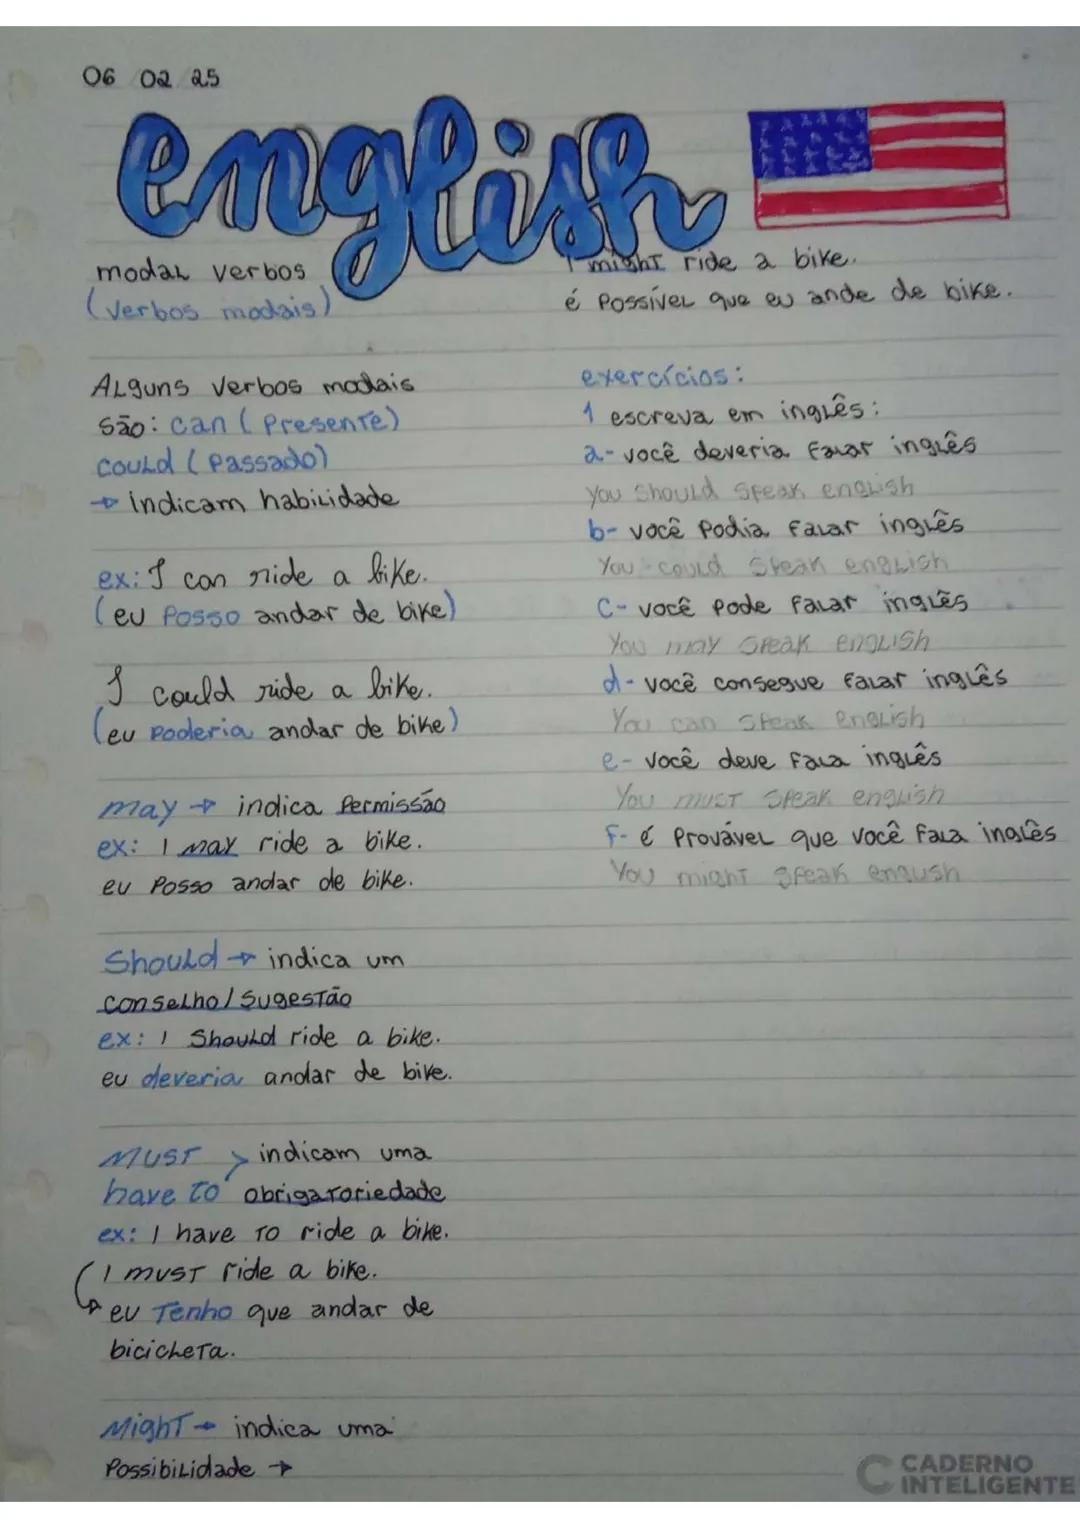 06 02 25
english
modal verbos
(verbos modais)
Alguns verbos modais
são: can (Presente)
could (Passado)
→ indicam habilidade
ex: I can ride a bike.
(eu Posso andar de bike)
I could ride a bike.
(eu Poderia andar de bike)
may → indica Permissão
ex: I may ride a bike.
eu Posso andar de bike.
Should → indica um
conselho/Sugestão
ex: I Should ride a bike.
eu deveria andar de bike.
Must > indicam uma
have to obrigatoriedade
ex: I have to ride a bike.
I must ride a bike.
eu Tenho que andar de
bicicheta.
Might → indica uma
Possibilidade →
I might ride a bike.
é Possível que eu ande de bike.
exercícios:
1 escreva em inglês:
a- você deveria falar inglês
You Should Speak english
b- você Podia falar inglês
You could Speak english
C- você Pode falar inglês
You may Speak english
d- você consegue falar inglês
You can Speak english
e- você deve fala inglês
You must Speak english
F- é Provável que você fala inglês
You might Speak english
CADERNO
INTELIGENTE